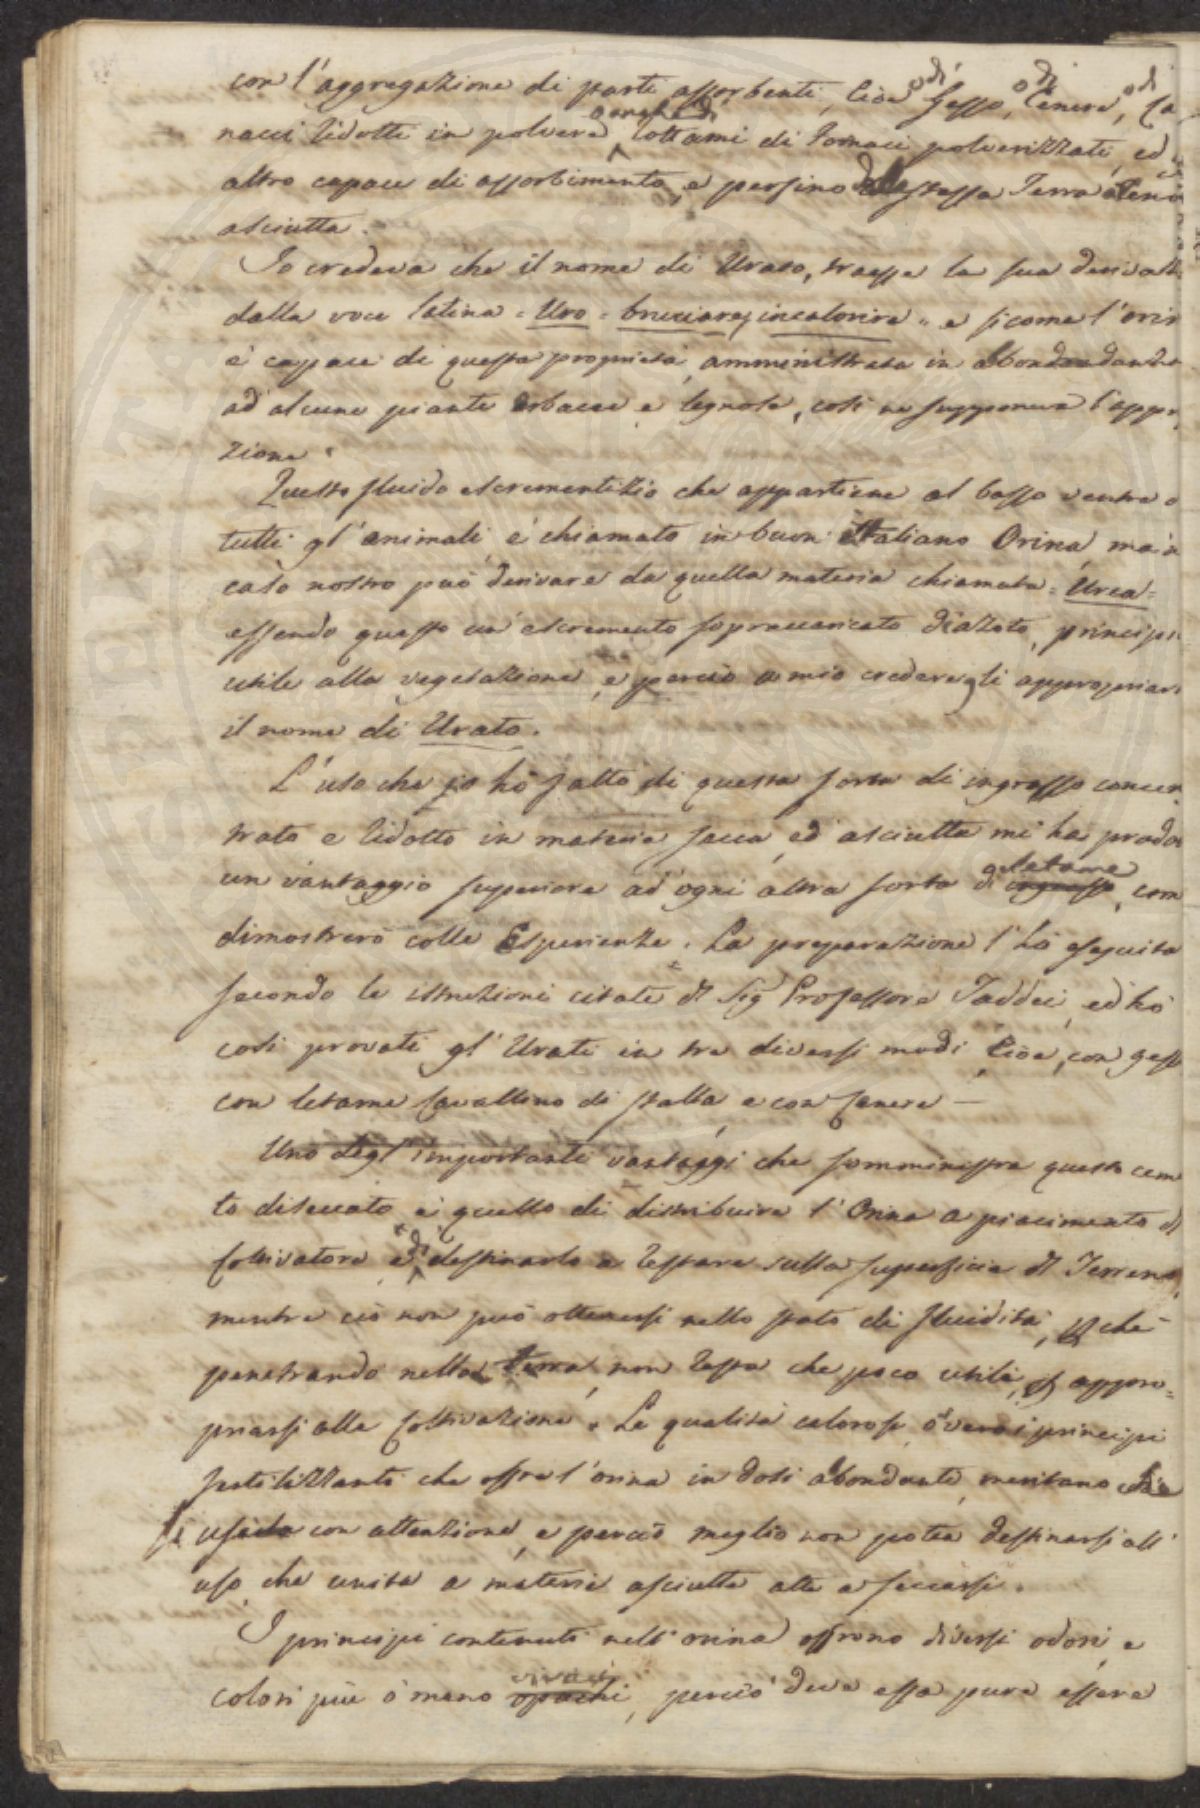 con l'aggregazione di parti assorbenti, Cioè o di Gesso, o di Cenere, o di Ca
nacci ridotti in polvere o anche di rottami di Fornaci polverizzati, ed
altro capace di assorbimento, e persino della stessa Terra
asciutta.
Io credeva che il nome di Urato, traesse la sua derivati
dalla voce latina = Uro = bruciare, incalorire " e sicome l'orin
è capace di questa proprietà, amministrata in abondandanza
ad alcune piante erbacee e legnose, così ne supponeva l'appr
zione.
Questo fluido escrementizio che appartiene al basso ventre d
tutti gl'animali, è chiamato in buon Italiano Orina, ma in
caso nostro può derivare da quella materia chiamata = Urea =
essendo questo un escremento sopraccaricato d'azoto, principi
utile alla vegetazione, e perciò a mio credere gli appropriar
il nome di Urato.
L'uso che io hò fatto di questa sorta di ingrasso concen
trato e ridotto in materia secca, ed asciutta mi ha prodo
un vantaggio superiore ad ogni altra sorta di ingrasso letame, com
dimostrerò colle Esperienze. La preparazione l'hò eseguita
secondo le istruzioni citate dl Sig Professore Taddei, ed hò
così provati gl'Urati in tre diversi modi, Cioè, con gess
con letame Cavallino di stalla, e con Cenere —
Uno degl'importanti vantaggi che somministra questo cem
to diseccato è quello di distribuire l'Orina a piacimento dl
Coltivatore e di destinarlo a restare sulla superficie dl Terreno,
mentre ciò non può ottenersi nello stato di fluidità, p che
penetrando nella terra, non resta che poco utile, p appro=
priarsi alla Coltivazione. Le qualità calorose, ò vero i principi
fertilizzanti che offre l'orina in dosi abondanti, meritano
usarla con attenzione, e perciò meglio non potea destinarsi all'
uso, che unita a materie asciutte atte a seccarsi.
I principi contenuti nell'orina offrono diversi odori, e
colori più ò meno opachi vivaci, perciò deve essa pure essere